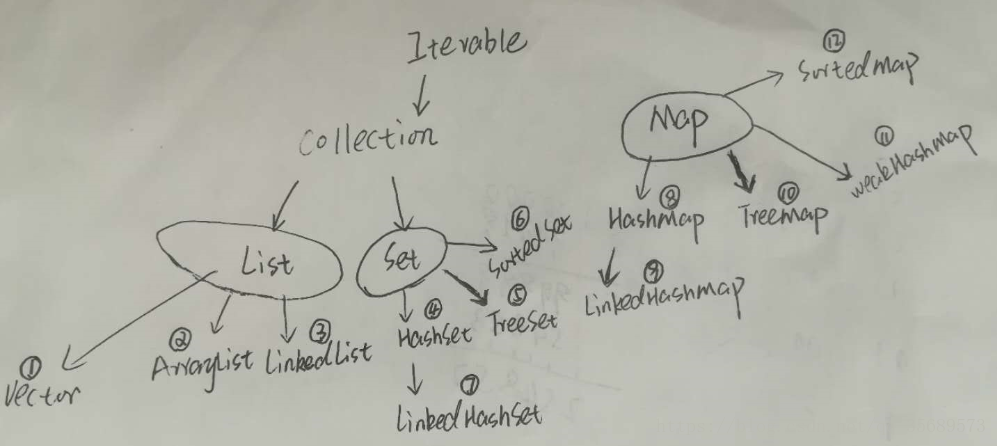 Iterable
Collection
List
Set
① Vector
② ArrayList
③ LinkedList
④ HashSet
⑤ TreeSet
⑥ SortedSet
⑦ LinkedHashSet
Map
⑧ Hashmap
⑨ LinkedHashmap
⑩ Treemap
⑪ weakHashmap
⑫ Sortedmap